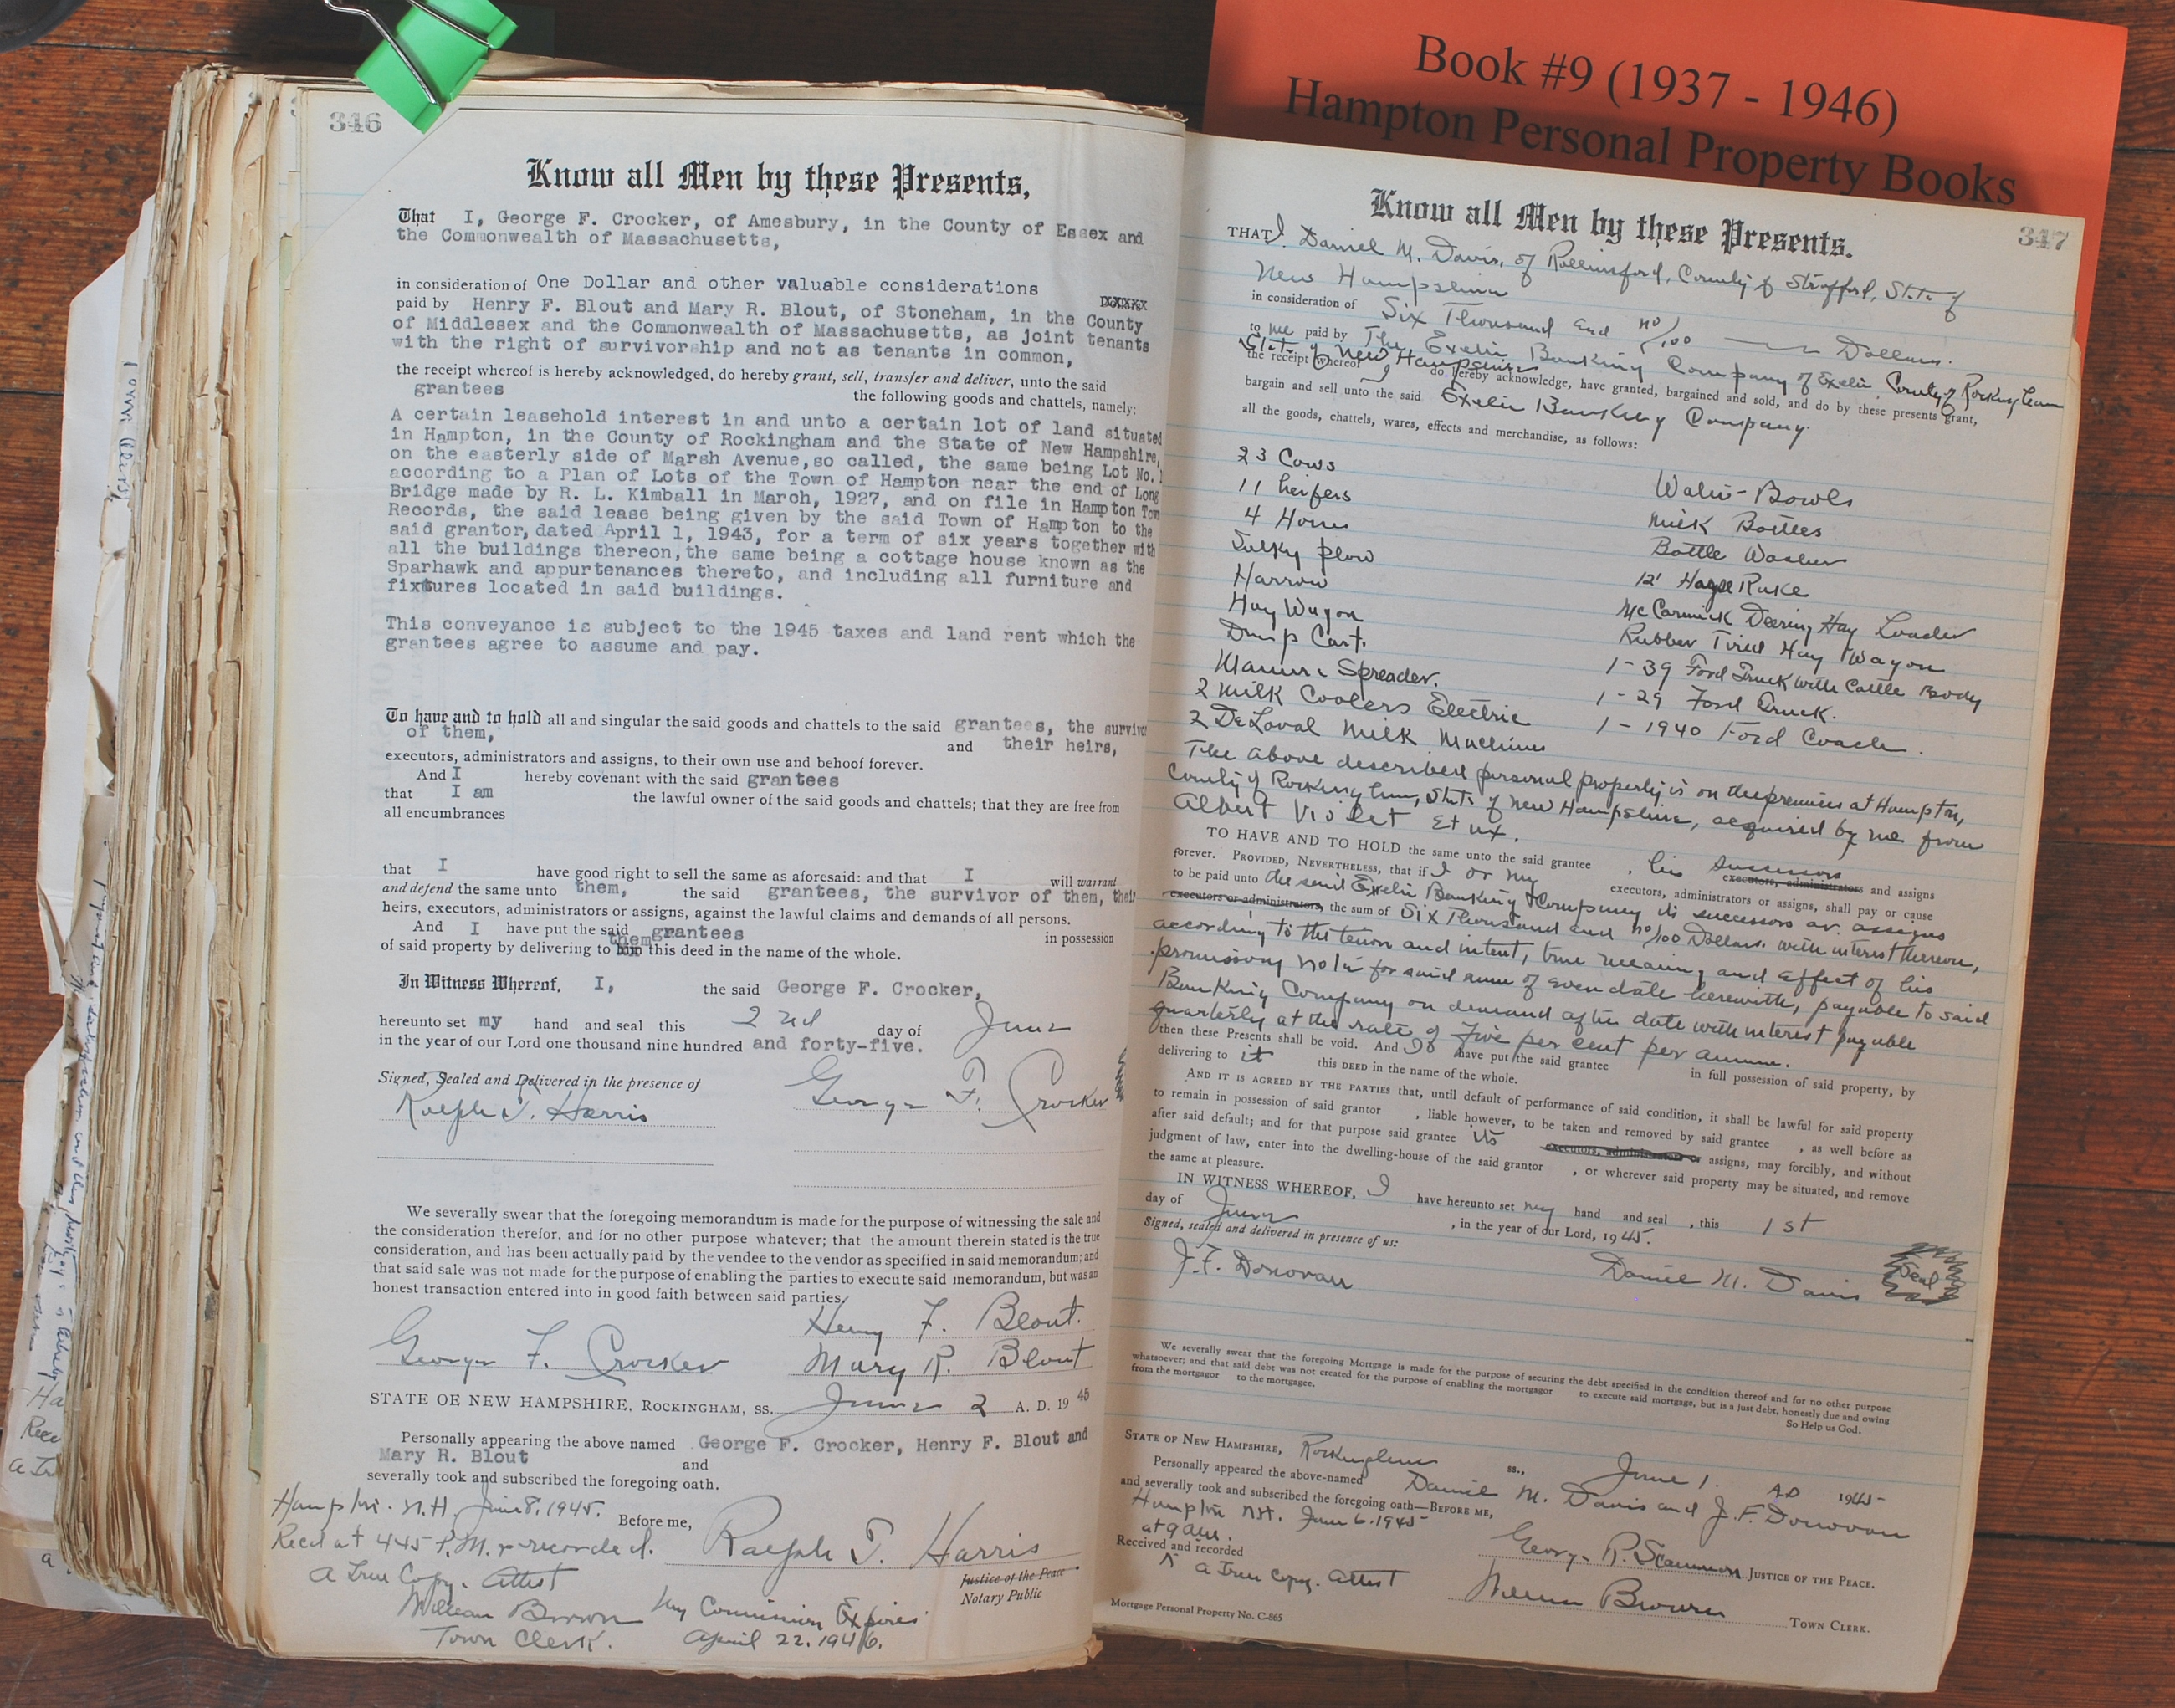 Book #9 (1937 - 1946)
Hampton Personal Property Books
346
Know all Men by these Presents,
That I, George F. Crocker, of Amesbury, in the County of Essex and
the Commonwealth of Massachusetts,
in consideration of One Dollar and other valuable considerations
paid by Henry F. Blout and Mary R. Blout, of Stoneham, in the County
of Middlesex and the Commonwealth of Massachusetts, as joint tenants
with the right of survivorship and not as tenants in common,
the receipt whereof is hereby acknowledged, do hereby grant, sell, transfer and deliver, unto the said
grantees the following goods and chattels, namely:
A certain leasehold interest in and unto a certain lot of land situated
in Hampton, in the County of Rockingham and the State of New Hampshire,
on the easterly side of Marsh Avenue, so called, the same being Lot No.
according to a Plan of Lots of the Town of Hampton near the end of Long
Bridge made by R. L. Kimball in March, 1927, and on file in Hampton Town
Records, the said lease being given by the said Town of Hampton to the
said grantor, dated April 1, 1943, for a term of six years together with
all the buildings thereon, the same being a cottage house known as the
Sparhawk and appurtenances thereto, and including all furniture and
fixtures located in said buildings.
This conveyance is subject to the 1945 taxes and land rent which the
grantees agree to assume and pay.
To have and to hold all and singular the said goods and chattels to the said grantees, the survivor
of them, and their heirs,
executors, administrators and assigns, to their own use and behoof forever.
And I hereby covenant with the said grantees
that I am the lawful owner of the said goods and chattels; that they are free from
all encumbrances
that I have good right to sell the same as aforesaid: and that I will warrant
and defend the same unto them, the said grantees, the survivor of them, their
heirs, executors, administrators or assigns, against the lawful claims and demands of all persons.
And I have put the said grantees in possession
of said property by delivering to them this deed in the name of the whole.
In Witness Whereof, I, the said George F. Crocker,
hereunto set my hand and seal this 2nd day of June
in the year of our Lord one thousand nine hundred and forty-five.
Signed, Sealed and Delivered in the presence of George F. Crocker
Ralph T. Harris
We severally swear that the foregoing memorandum is made for the purpose of witnessing the sale and
the consideration therefor, and for no other purpose whatever; that the amount therein stated is the true
consideration, and has been actually paid by the vendee to the vendor as specified in said memorandum; and
that said sale was not made for the purpose of enabling the parties to execute said memorandum, but was an
honest transaction entered into in good faith between said parties.
Henry F. Blout.
George F. Crocker Mary R. Blout
STATE OF NEW HAMPSHIRE, ROCKINGHAM, SS. June 2 A. D. 1945
Personally appearing the above named George F. Crocker, Henry F. Blout and
Mary R. Blout and
severally took and subscribed the foregoing oath.
Hampton. N.H. June 8, 1945.
Before me,
Recd at 445 P.M. & recorded. Ralph T. Harris
A True Copy. Attest Justice of the Peace
Notary Public
William Brown My Commission Expires
Town Clerk. April 22, 1946.
347
Know all Men by these Presents.
THAT I Daniel M. Davis, of Rollinsford, County of Strafford, State of
New Hampshire
in consideration of Six Thousand and no/100 Dollars.
to me paid by The Exeter Banking Company of Exeter, County of Rockingham
State of New Hampshire
the receipt whereof I do hereby acknowledge, have granted, bargained and sold, and do by these presents grant,
bargain and sell unto the said Exeter Banking Company.
all the goods, chattels, wares, effects and merchandise, as follows:
23 Cows
11 heifers
4 Horses
Sulky plow
Harrow
Hay Wagon
Dump Cart.
Manure Spreader.
2 Milk Coolers Electric
2 DeLaval Milk Machines
Water-Bowls
Milk Bottles
Bottle Washer
12' Hayse Rake
McCormick Deering Hay Loader
Rubber Tired Hay Wagon
1-39 Ford Truck with Cattle Body
1-29 Ford Truck.
1-1940 Ford Coach.
The above described personal property is on the premises at Hampton,
County of Rockingham, State of New Hampshire, acquired by me from
Albert Violet Et ux.
TO HAVE AND TO HOLD the same unto the said grantee, his successors executors, administrators and assigns
forever. PROVIDED, NEVERTHELESS, that if I or my executors, administrators or assigns, shall pay or cause
to be paid unto the said Exeter Banking Company its successors or assigns
executors or administrators, the sum of Six Thousand and no/100 Dollars. with interest thereon,
according to the tenor and intent, true meaning and effect of his
promissory note for said sum of even date herewith, payable to said
Banking Company on demand after date with interest payable
quarterly at the rate of Five per cent per annum.
then these Presents shall be void. And I do have put the said grantee in full possession of said property, by
delivering to it this DEED in the name of the whole.
AND IT IS AGREED BY THE PARTIES that, until default of performance of said condition, it shall be lawful for said property
to remain in possession of said grantor , liable however, to be taken and removed by said grantee , as well before as
after said default; and for that purpose said grantee its executors, administrators or assigns, may forcibly, and without
judgment of law, enter into the dwelling-house of the said grantor , or wherever said property may be situated, and remove
the same at pleasure.
IN WITNESS WHEREOF, I have hereunto set my hand and seal , this 1st
day of June , in the year of our Lord, 1945.
Signed, sealed and delivered in presence of us:
J. F. Donovan Daniel M. Davis Seal
We severally swear that the foregoing Mortgage is made for the purpose of securing the debt specified in the condition thereof and for no other purpose
whatsoever; and that said debt was not created for the purpose of enabling the mortgagor to execute said mortgage, but is a just debt, honestly due and owing
from the mortgagor to the mortgagee. So Help us God.
STATE OF NEW HAMPSHIRE, Rockingham ss., June 1. AD 1945
Personally appeared the above-named Daniel M. Davis and J. F. Donovan
and severally took and subscribed the foregoing oath—BEFORE ME,
Hampton N.H. June 6. 1945
at 9 AM. George R. Scammon JUSTICE OF THE PEACE.
Received and recorded
A True Copy. Attest William Brown TOWN CLERK.
Mortgage Personal Property No. C-865